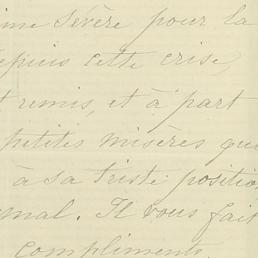 ime sévère pour la
epuis cette crise,
t remis, et à part
petites misères que
à sa triste position
mal. Il vous fait
compliments